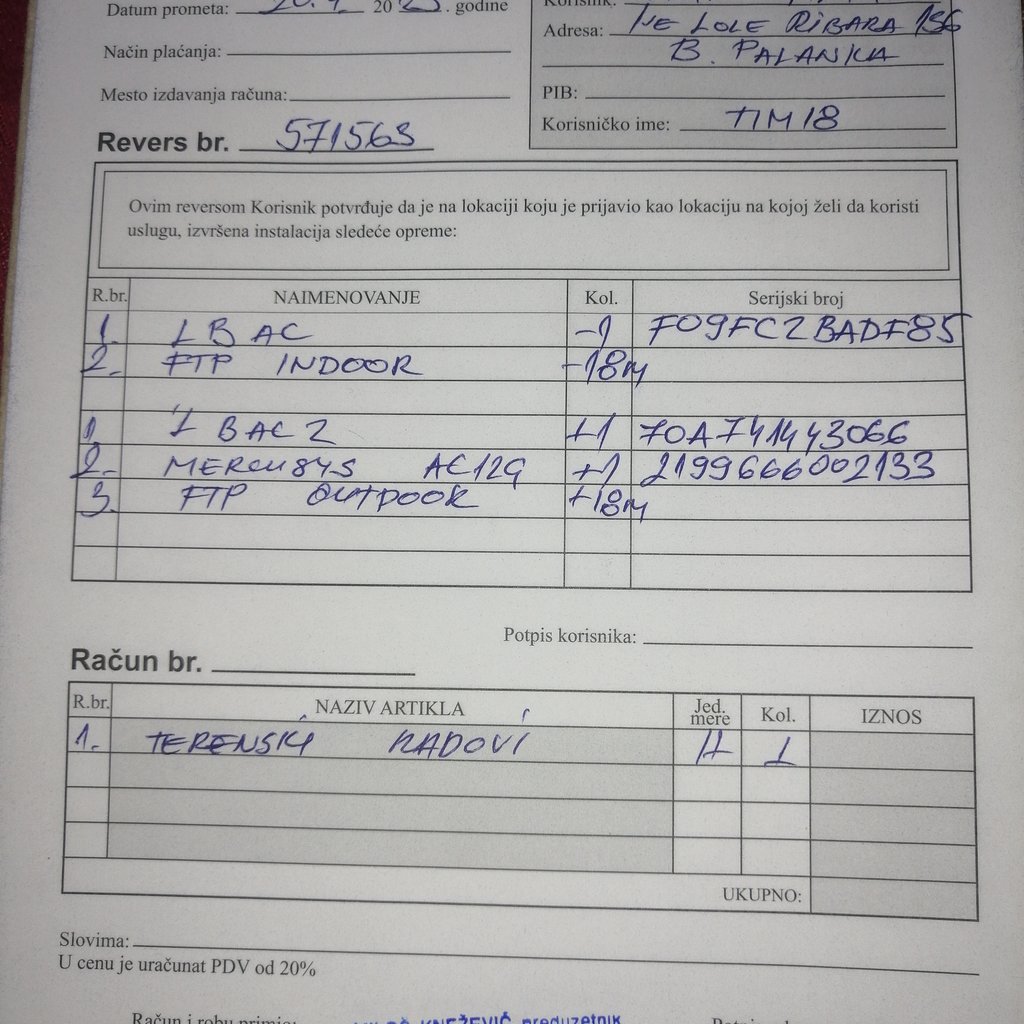 Datum prometa: 20. 20 23. godine
Korisnik:
Adresa: IVE LOLE RIBARA 156
Način plaćanja:
B. PALANKA
Mesto izdavanja računa:
PIB:
Korisničko ime: TIM18
Revers br. 571563
Ovim reversom Korisnik potvrđuje da je na lokaciji koju je prijavio kao lokaciju na kojoj želi da koristi
uslugu, izvršena instalacija sledeće opreme:
R.br. NAIMENOVANJE Kol. Serijski broj
1. LB AC -1 F09FC2BADF85
2. FTP INDOOR -18m
1. LBAC 2 +1 70A741443066
2. MERCUSYS AC12G +1 2199666002133
3. FTP OUTDOOR +18m
Potpis korisnika:
Račun br.
R.br. NAZIV ARTIKLA Jed. mere Kol. IZNOS
1. TERENSKI RADOVI H 1
UKUPNO:
Slovima:
U cenu je uračunat PDV od 20%
Račun i robu primio: KNEŽEVIĆ preduzetnik